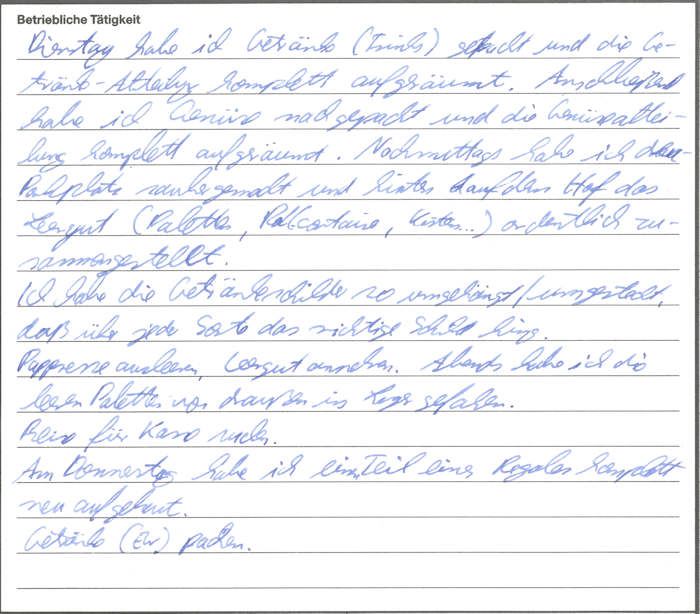 Betriebliche Tätigkeit
Dienstag habe ich Getränke (Trinks) gepackt und die Ge-
tränke-Abteilung komplett aufgeräumt. Anschließend
habe ich Gemüse nachgepackt und die Gemüseabtei-
lung komplett aufgeräumt. Nachmittags habe ich den
Parkplatz saubergemacht und hinten auf dem Hof das
Leergut (Paletten, Rollcontainer, Kisten...) ordentlich zu-
sammengestellt.
Ich habe die Getränkeschilder so umgehängt/umgesteckt,
daß über jeder Sorte das richtige Schild hing.
Pappresse ausleeren, Leergut annehmen. Abends habe ich die
leeren Paletten von draußen ins Lager gefahren.
Preise für Karo
Am Donnerstag habe ich einen Teil eines Regales komplett
neu aufgebaut.
Getränke (EW) packen.